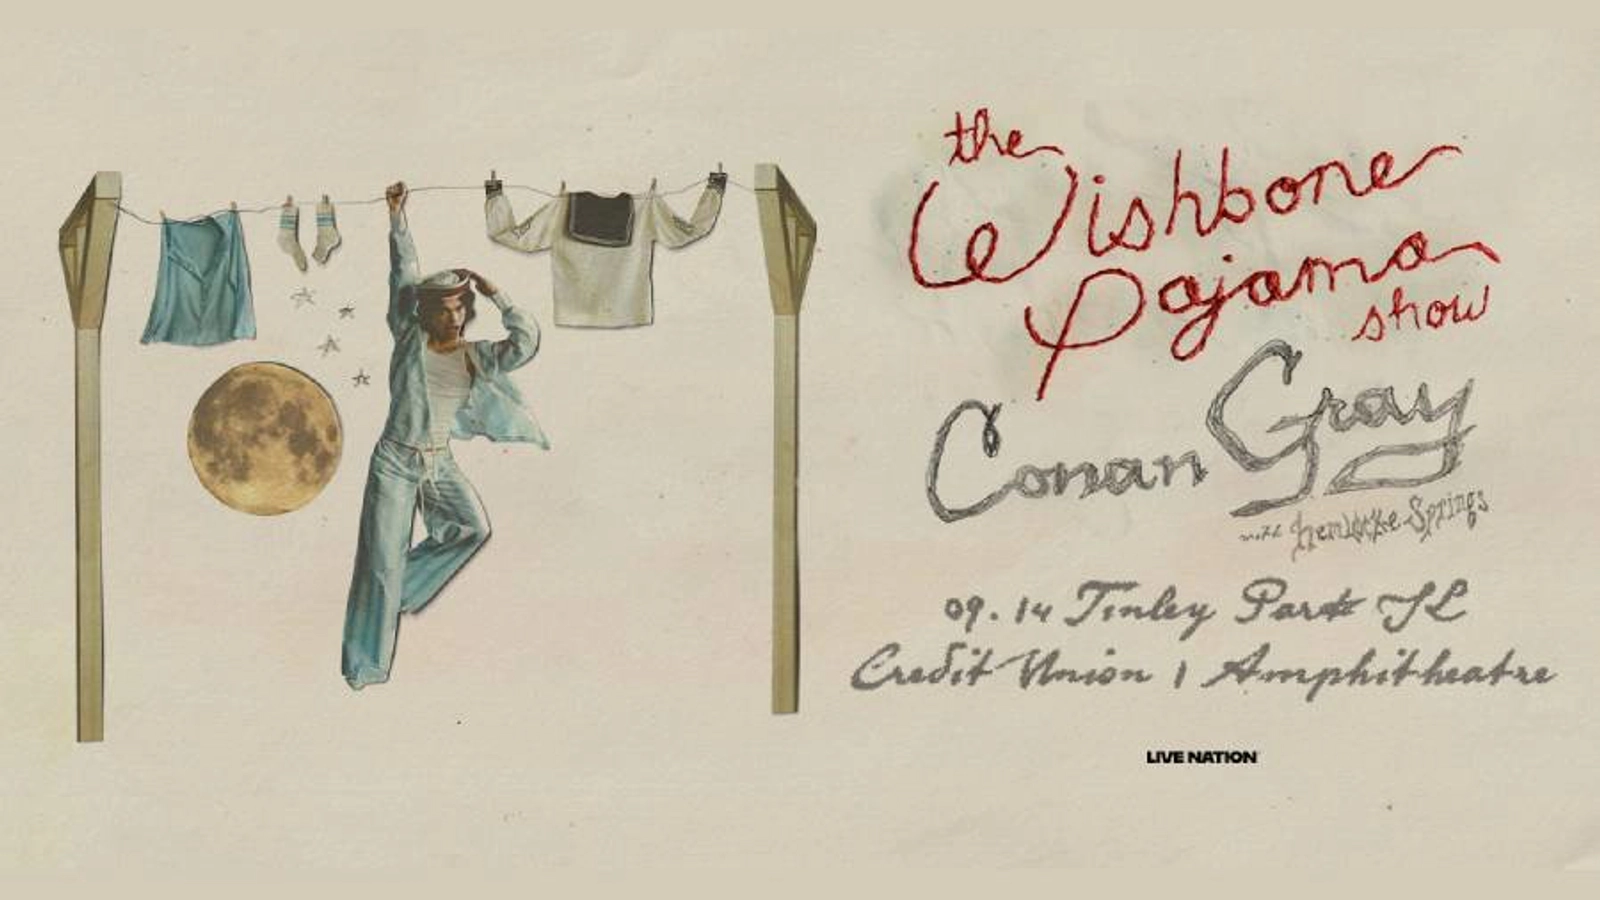 the
Wishbone
Pajama
show
Conan Gray
with Hemlocke Springs
09. 14 Tinley Park IL
Credit Union 1 Amphitheatre
LIVE NATION